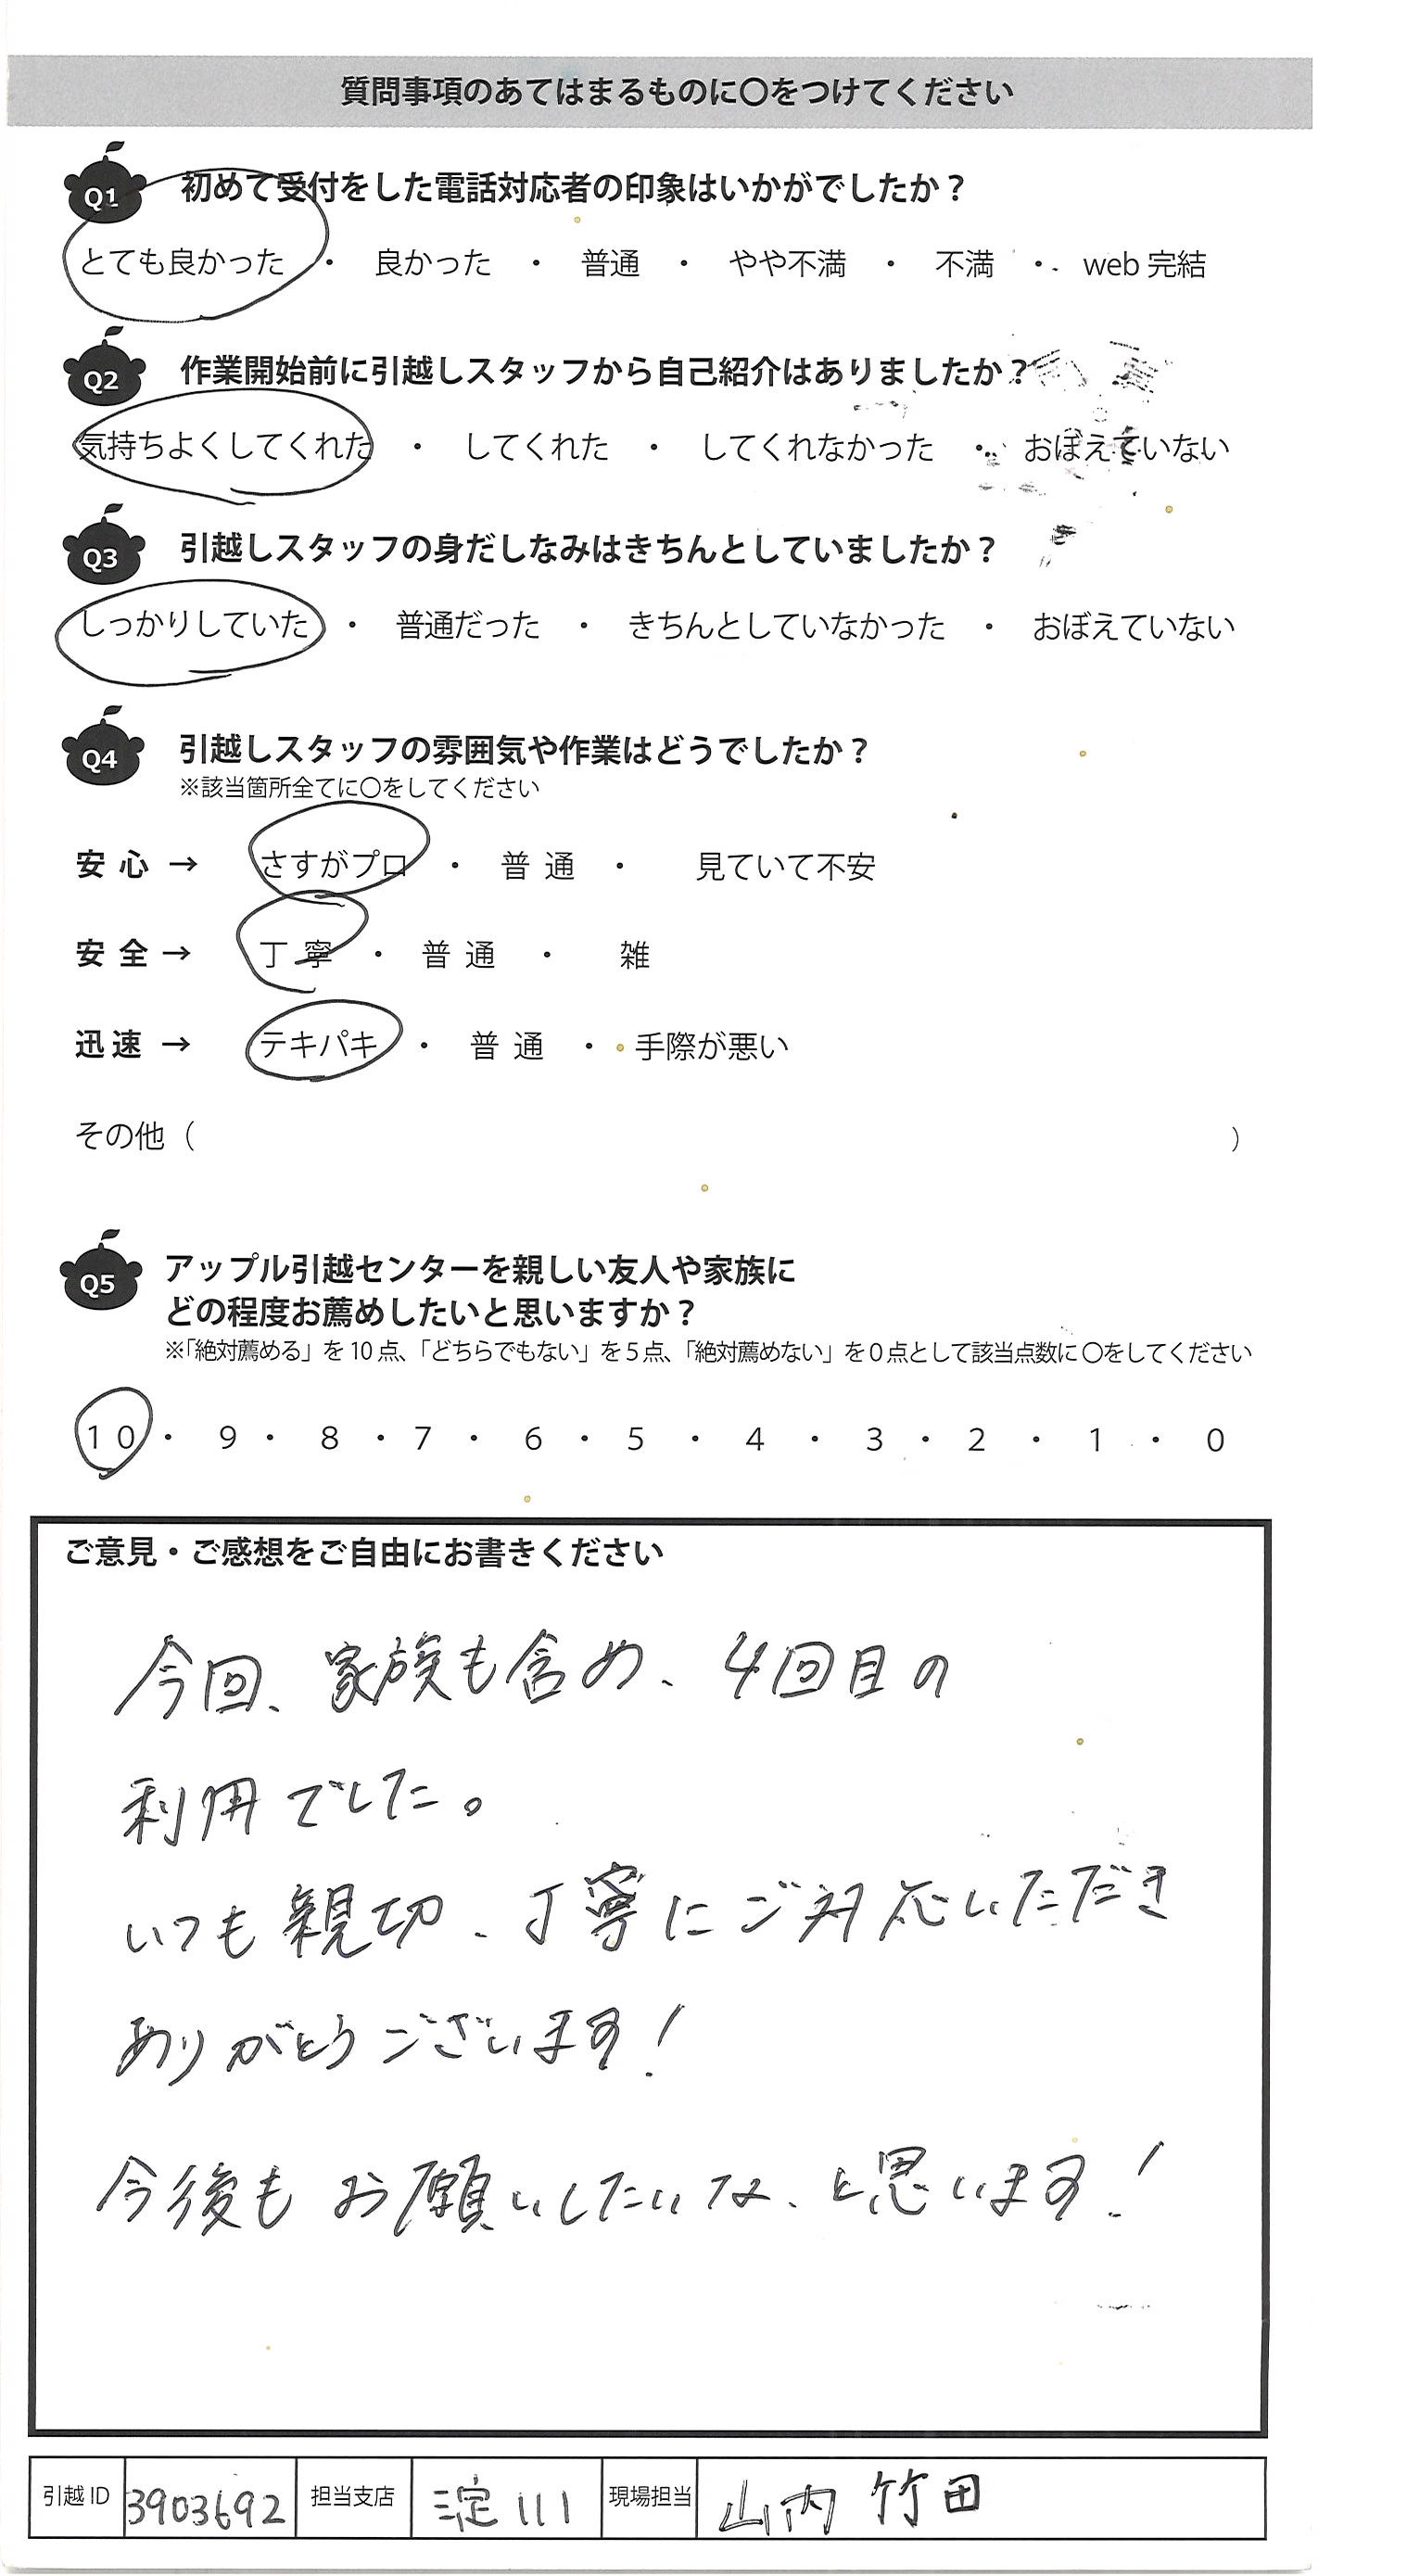 質問事項のあてはまるものに〇をつけてください
Q1 初めて受付をした電話対応者の印象はいかがでしたか？
とても良かった ・ 良かった ・ 普通 ・ やや不満 ・ 不満 ・ web 完結
Q2 作業開始前に引越しスタッフから自己紹介はありましたか？
気持ちよくしてくれた ・ してくれた ・ してくれなかった ・ おぼえていない
Q3 引越しスタッフの身だしなみはきちんとしていましたか？
しっかりしていた ・ 普通だった ・ きちんとしていなかった ・ おぼえていない
Q4 引越しスタッフの雰囲気や作業はどうでしたか？
※該当箇所全てに〇をしてください
安心 → さすがプロ ・ 普通 ・ 見ていて不安
安全 → 丁寧 ・ 普通 ・ 雑
迅速 → テキパキ ・ 普通 ・ 手際が悪い
その他（ ）
Q5 アップル引越センターを親しい友人や家族に
どの程度お薦めしたいと思いますか？
※「絶対薦める」を10点、「どちらでもない」を5点、「絶対薦めない」を0点として該当点数に〇をしてください
10 ・ 9 ・ 8 ・ 7 ・ 6 ・ 5 ・ 4 ・ 3 ・ 2 ・ 1 ・ 0
ご意見・ご感想をご自由にお書きください
今回、家族も含め、4回目の
利用でした。
いつも親切、丁寧にご対応いただき
ありがとうございます!
今後もお願いしたいな、と思います!
引越ID 3903692 担当支店 淀川 現場担当 山内 竹田